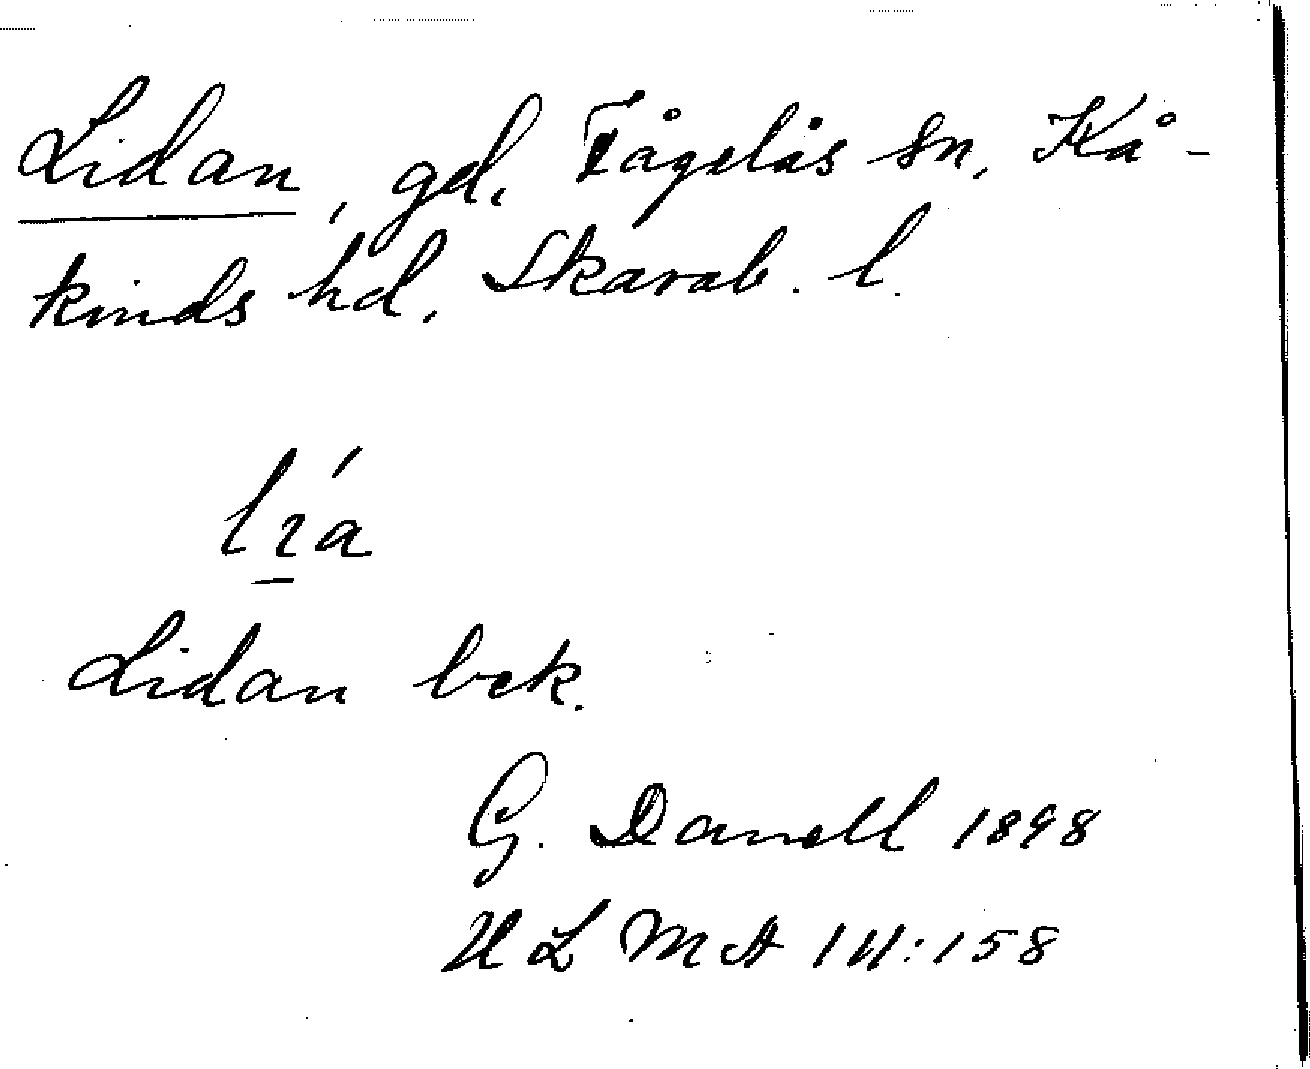 Lidan, gd. Fågelås sn, Kå-
kinds hd. Skarab. l.
Lidan bek.
G. Danell 1898
ULMA 14:158